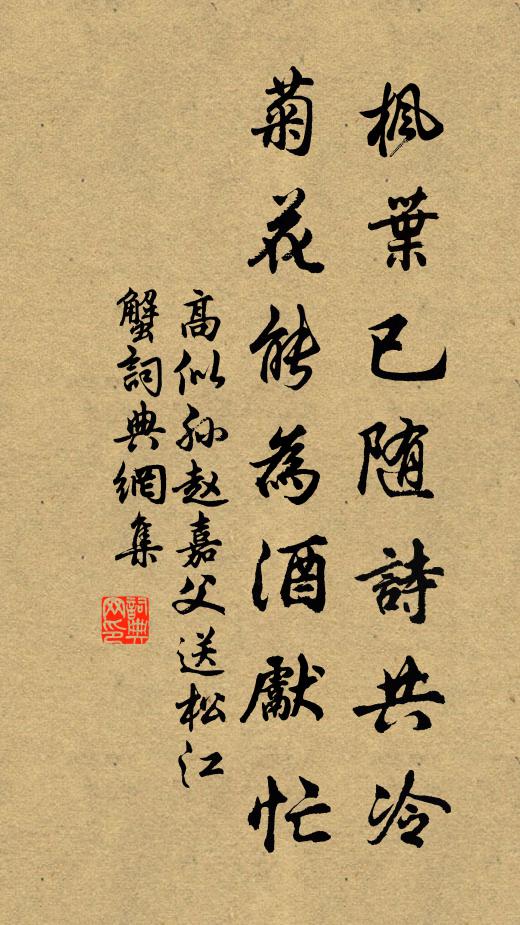 枫葉已随詩共冷
菊花能為酒獻忙
高似孙赵嘉父送松江
蟹詞典網集
詞典网印